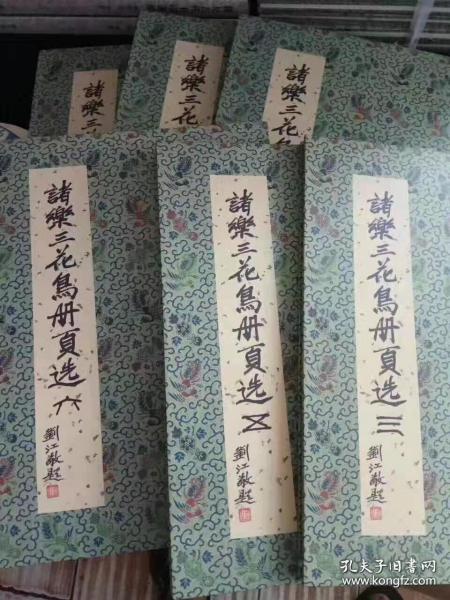 諸樂三
諸樂三花
諸樂三花鳥
諸樂三花鳥册頁选 六
劉江敬題
諸樂三花鳥册頁选 五
劉江敬題
諸樂三花鳥册頁选 三
劉江敬題
孔夫子旧书网
www.kongfz.com